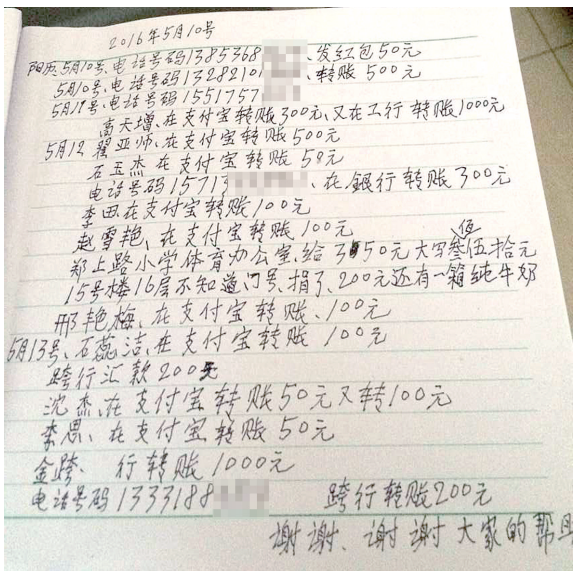 2016年5月10号
阳历5月10号、电话号码1385368、发红包50元
5月10号、电话号码1328210、转账500元
5月11号、电话号码1551757
高天增、在支付宝转账300元、又在工行转账1000元
5月12 翟亚帅、在支付宝转账500元
石玉杰在支付宝转账50元
电话号码15713、在银行转账300元
李田在支付宝转账100元
赵雪艳、在支付宝转账100元
郑上路小学体育办公室、给350元大写叁佰伍拾元
15号楼16层不知道门号、捐了、200元还有一箱纯牛奶
邢艳梅、在支付宝转账、100元
5月13号、石蕊洁、在支付宝转账100元
跨行汇款200元
沈杰、在支付宝转账50元又转100元
李思、在支付宝转账50元
金跨、行转账1000元
电话号码1333188 跨行转账200元
谢谢、谢谢大家的帮